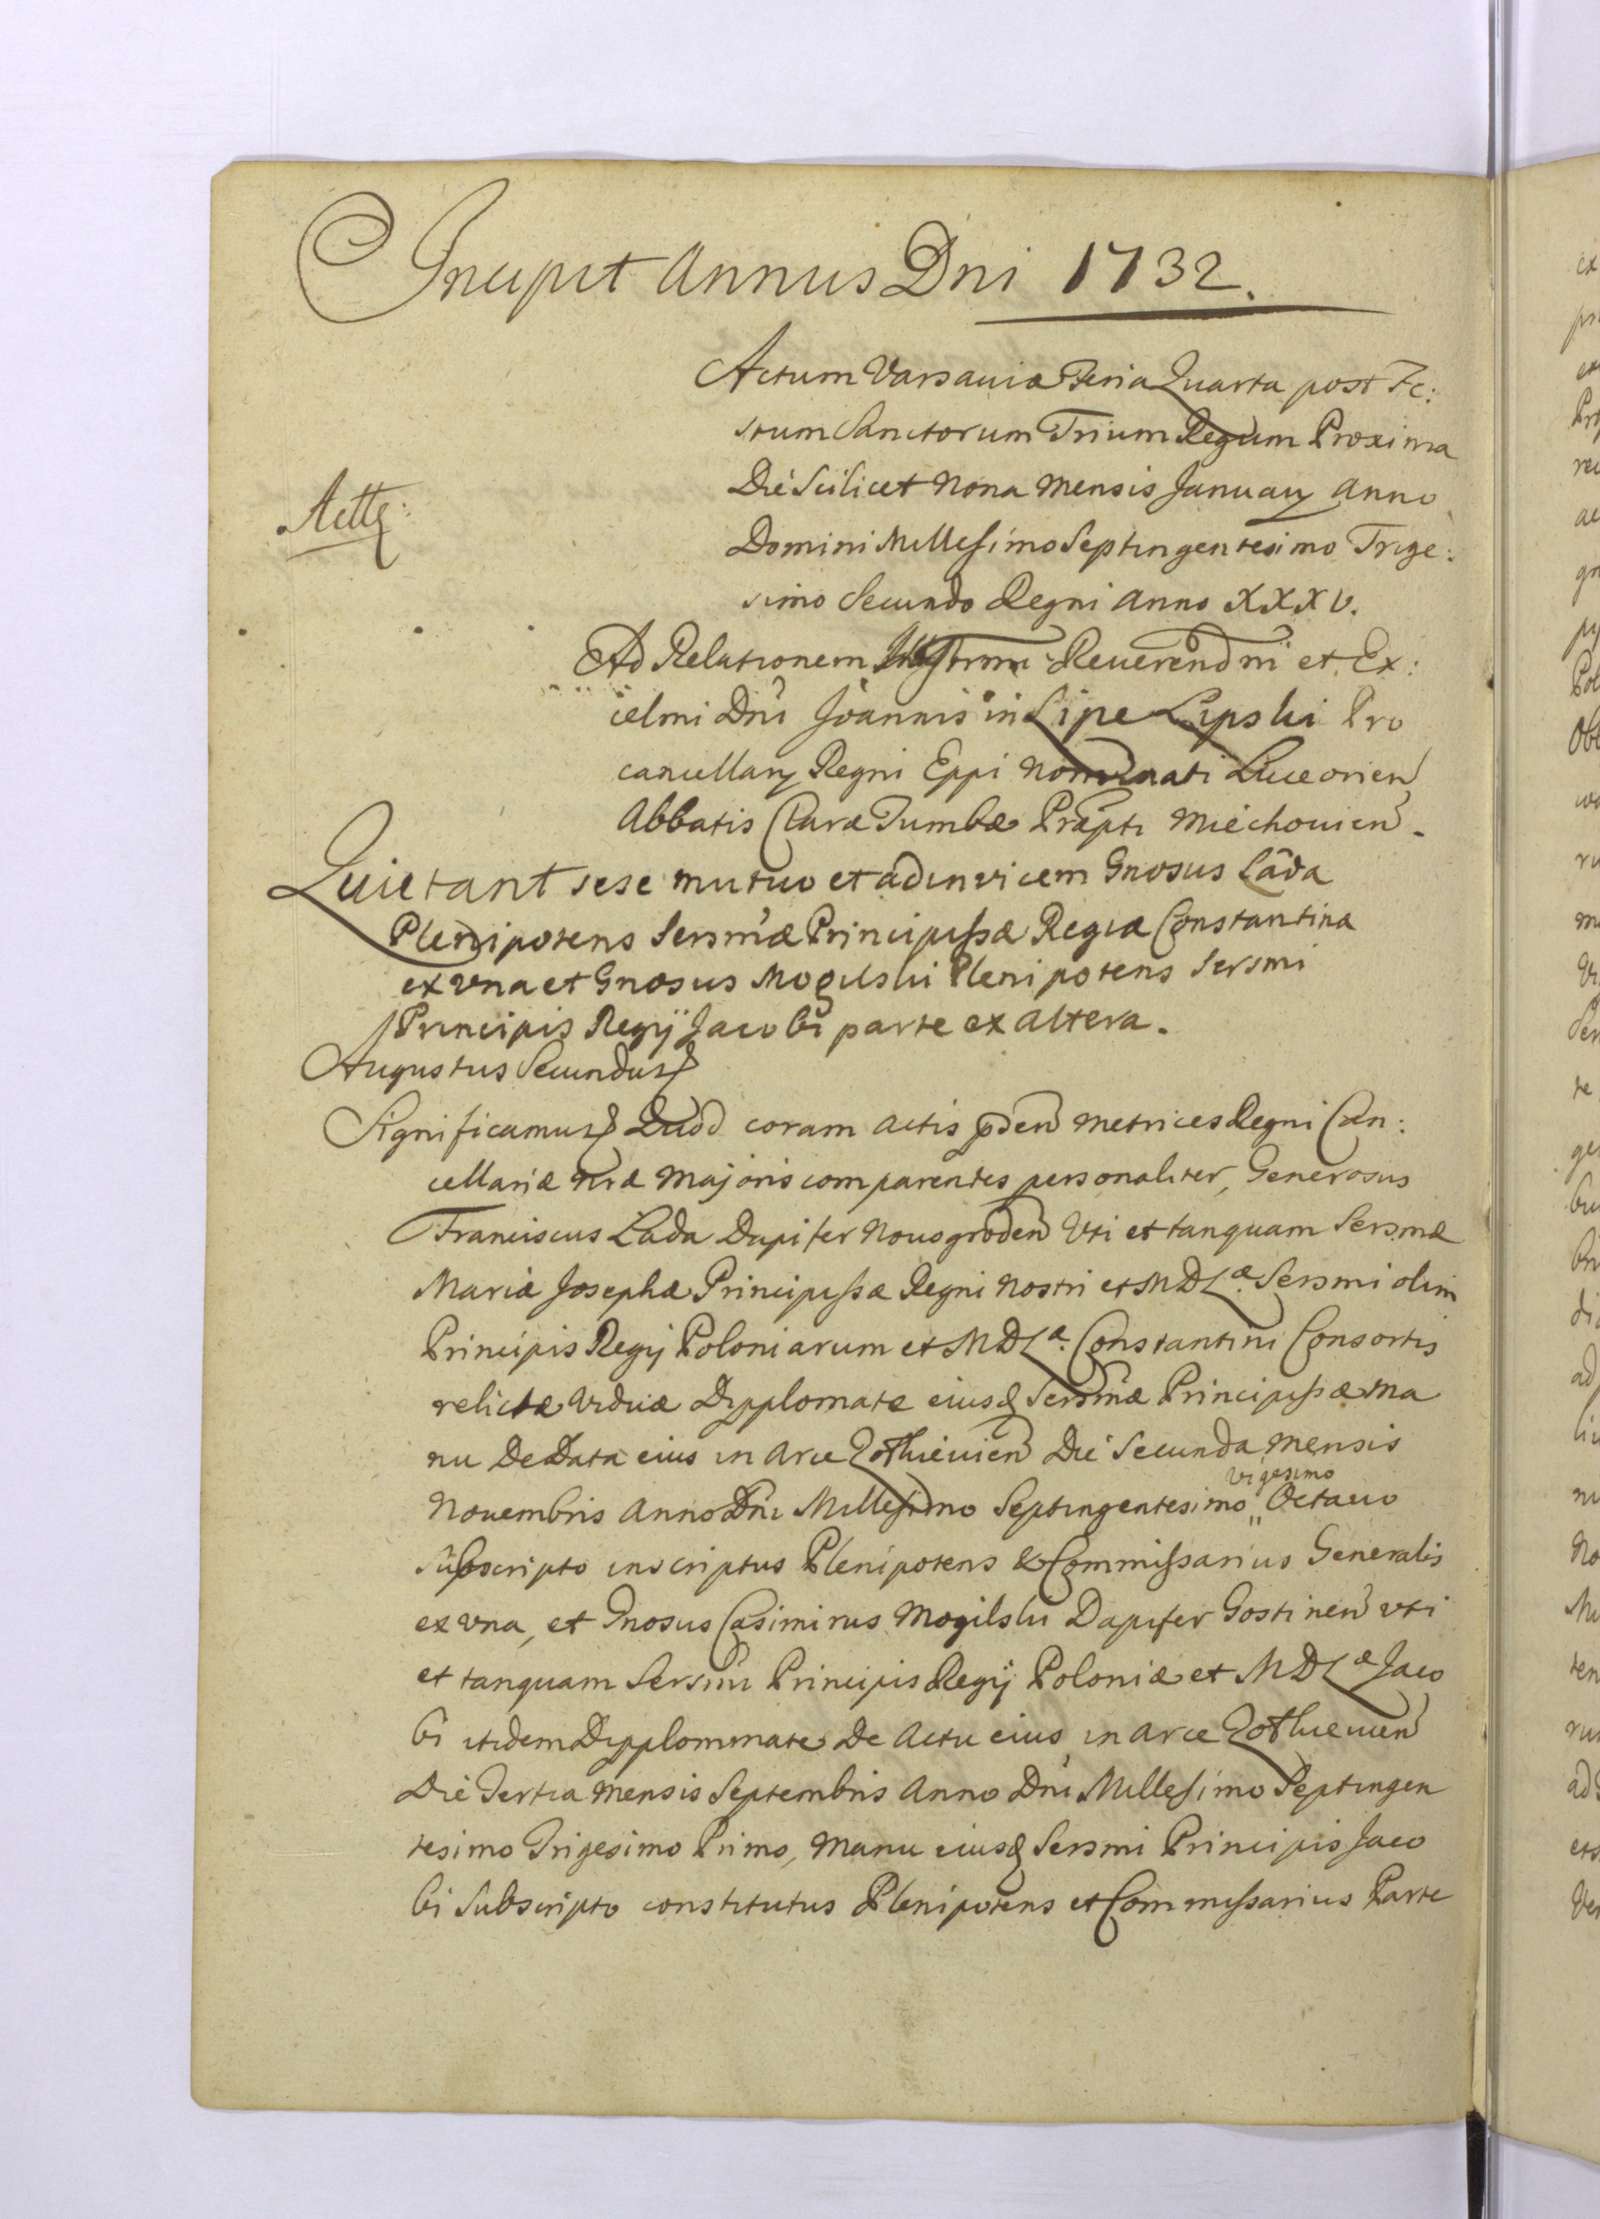 Incipit Annus Dni 1732.
Actum Varsaviæ Feria Quarta post Fe:
stum Sanctorum Trium Regum Proxima
Die Scilicet Nona Mensis January Anno
Domini Millesimo Septingentesimo Trige:
simo Secundo Regni Anno XXXV.
Ad Relationem Reverendmi et Ex:
celmi Dni Joannis in Lipe Lipski Pro
cancellary Regni Eppi Nominati Luceorien
Abbatis Claræ Tumbæ Præpti Miechovien.
Quietant sese mutuo et adinvicem Gnosus Lada
Plenipotens Sersmæ Principissæ Regiæ Constantinæ
ex una et Gnosus Mogilski Plenipotens Sersmi
Principis Regij Jacobi parte ex altera.
Augustus Secundus
Significamus Quod coram Actis pden Metrices Regni Can:
cellariæ Nræ Majoris comparentes personaliter, Generosus
Franciscus Lada Dapifer Nowogroden Uti et tanquam Sersmæ
Mariæ Josephæ Principissæ Regni Nostri et MDLæ. Sersmi olim
Principis Regij Poloniarum et MDLæ. Constantini Consortis
relictæ Viduæ Dypplomate eiusd Sersmæ Principissæ ma
nu De Data eius in Arce Zołkievien Die Secunda Mensis
Novembris Anno Dni Millesimo Septingentesimo " Vigesimo Octavo
subscripto inscriptus Plenipotens & Commissarius Generalis
ex una, et Gnosus Casimirus Mogilski Dapifer Gostinen uti
et tanquam Sersmi Principis Regij Poloniæ et MDLæ Jaco
bi itidem Dypplommate De Actu eius in Arce Zołkievien
Die Tertia Mensis Septembris Anno Dni Millesimo Septingen
tesimo Trigesimo Primo, Manu eiusd Sersmi Principis Jaco
bi Subscripto constitutus Plenipotens et Commissarius Parte